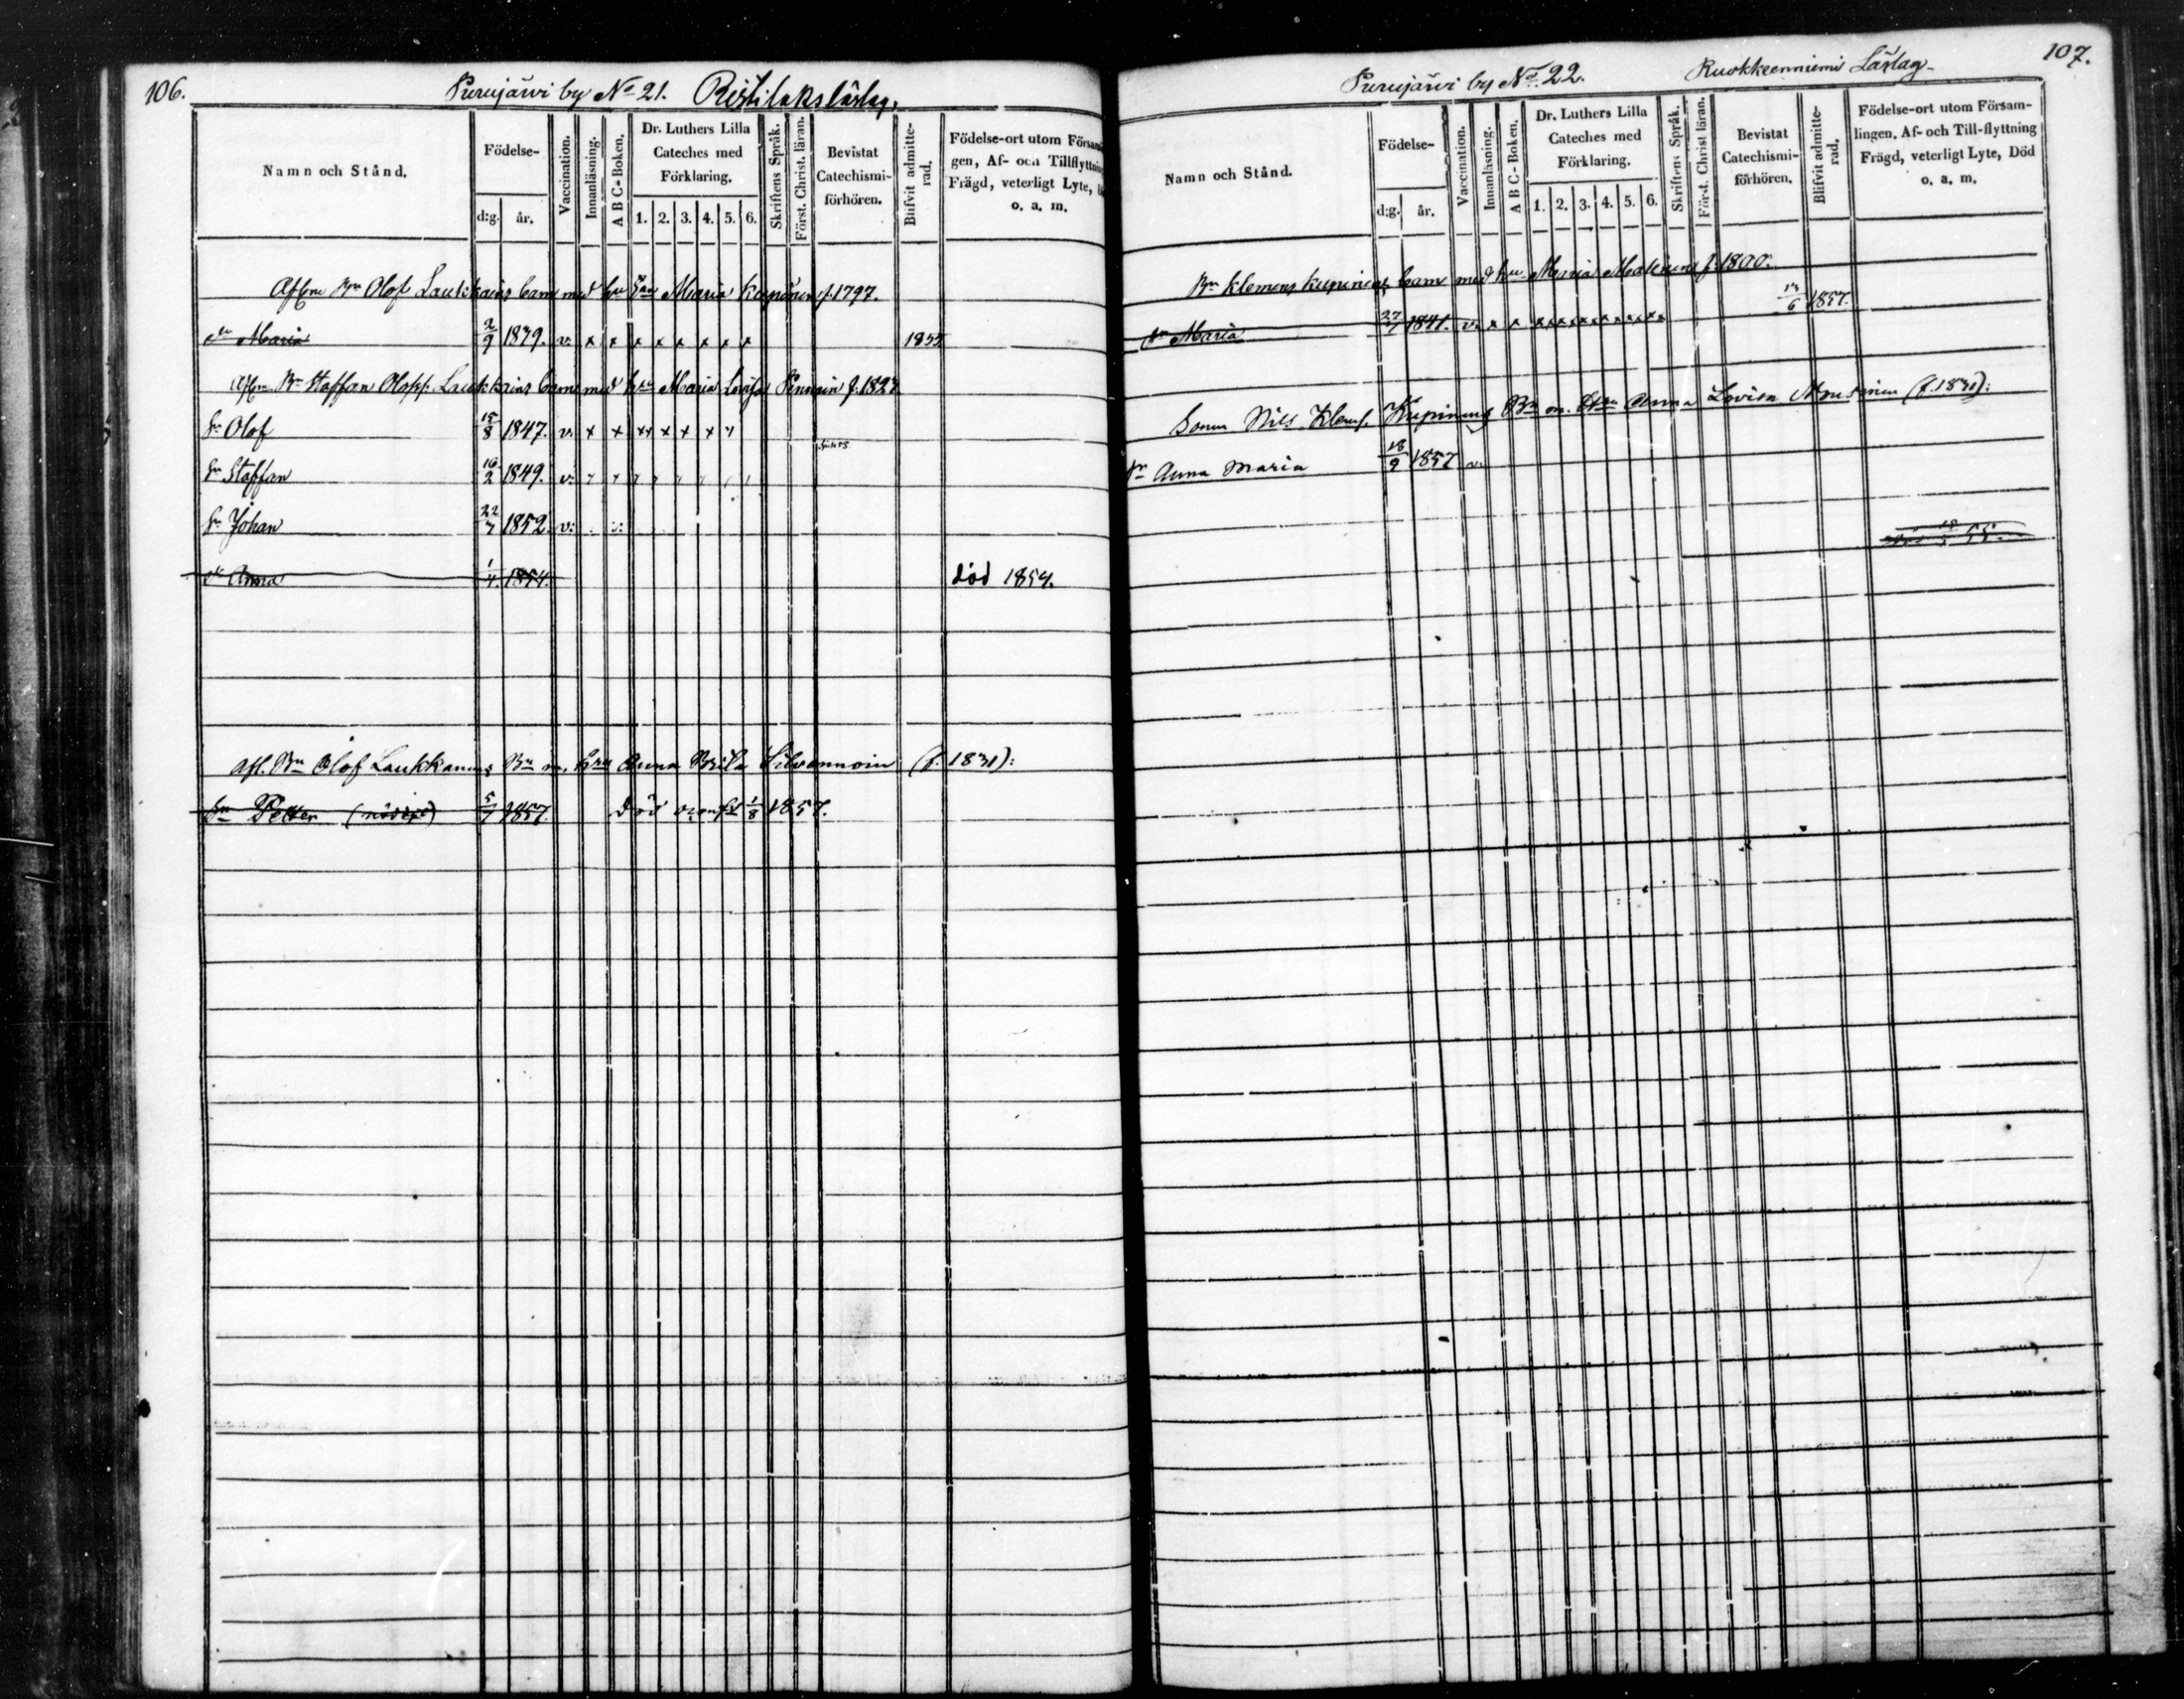 106.
Purujärvi by No 21. Ristilakslästag.
Namn och Stånd.
Födelse-
d:g. år.
Vaccination.
Innanläsning.
A B C-Boken.
Dr. Luthers Lilla Cateches med Förklaring.
1. 2. 3. 4. 5. 6.
Skriftens Språk.
Först. Christ. läran.
Bevistat Catechismi-förhören.
Blifvit admitte-rad.
Födelse-ort utom Försam
gen, Af- och Tillflyttnin
Frägd, veterligt Lyte,
o. a. m.
Bn Olof Laukkains barn med hu Maria Kupiainen f. 1797.
dr Maria 2/9 1839. v. x x x x x x x x 1855
Bn Staffan Olofs. Laukkains barn med hru Maria Lovisa Pennain f. 1823
Sn Olof 15/8 1847. v. x x xx x x x x
Sn Staffan 16/2 1849. v.
Sn Johan 22/7 1852. v.
dr Anna 1/4. 1854. död 1854.
afl. Bn Olof Laukkanens Bn m. hru Anna Brita Silvennoin (f. 1831):
Sn Petter 5/7 1857. Död 1/8 1857.
107.
Purujärvi by No 22. Ruokkeenniemi Lästag
Namn och Stånd.
Födelse-
d:g. år.
Vaccination.
Innanläsning.
A B C-Boken.
Dr. Luthers Lilla Cateches med Förklaring.
1. 2. 3. 4. 5. 6.
Skriftens Språk.
Först. Christ läran.
Bevistat Catechismi-förhören.
Blifvit admitte-rad.
Födelse-ort utom Försam-
lingen. Af- och Till-flyttning
Frägd, veterligt Lyte, Död
o. a. m.
Bn Klemens Kupinens barn med hu Maria Makeinen f. 1800.
13/6 1857.
dr Maria 27/7 1841. v. x x xxxxxxxxxx
Sonen Nils Klems. Kupinens Bn m. Hru Anna Lovisa (f. 1831):
dr Anna Maria 18/9 1857 v.
55.